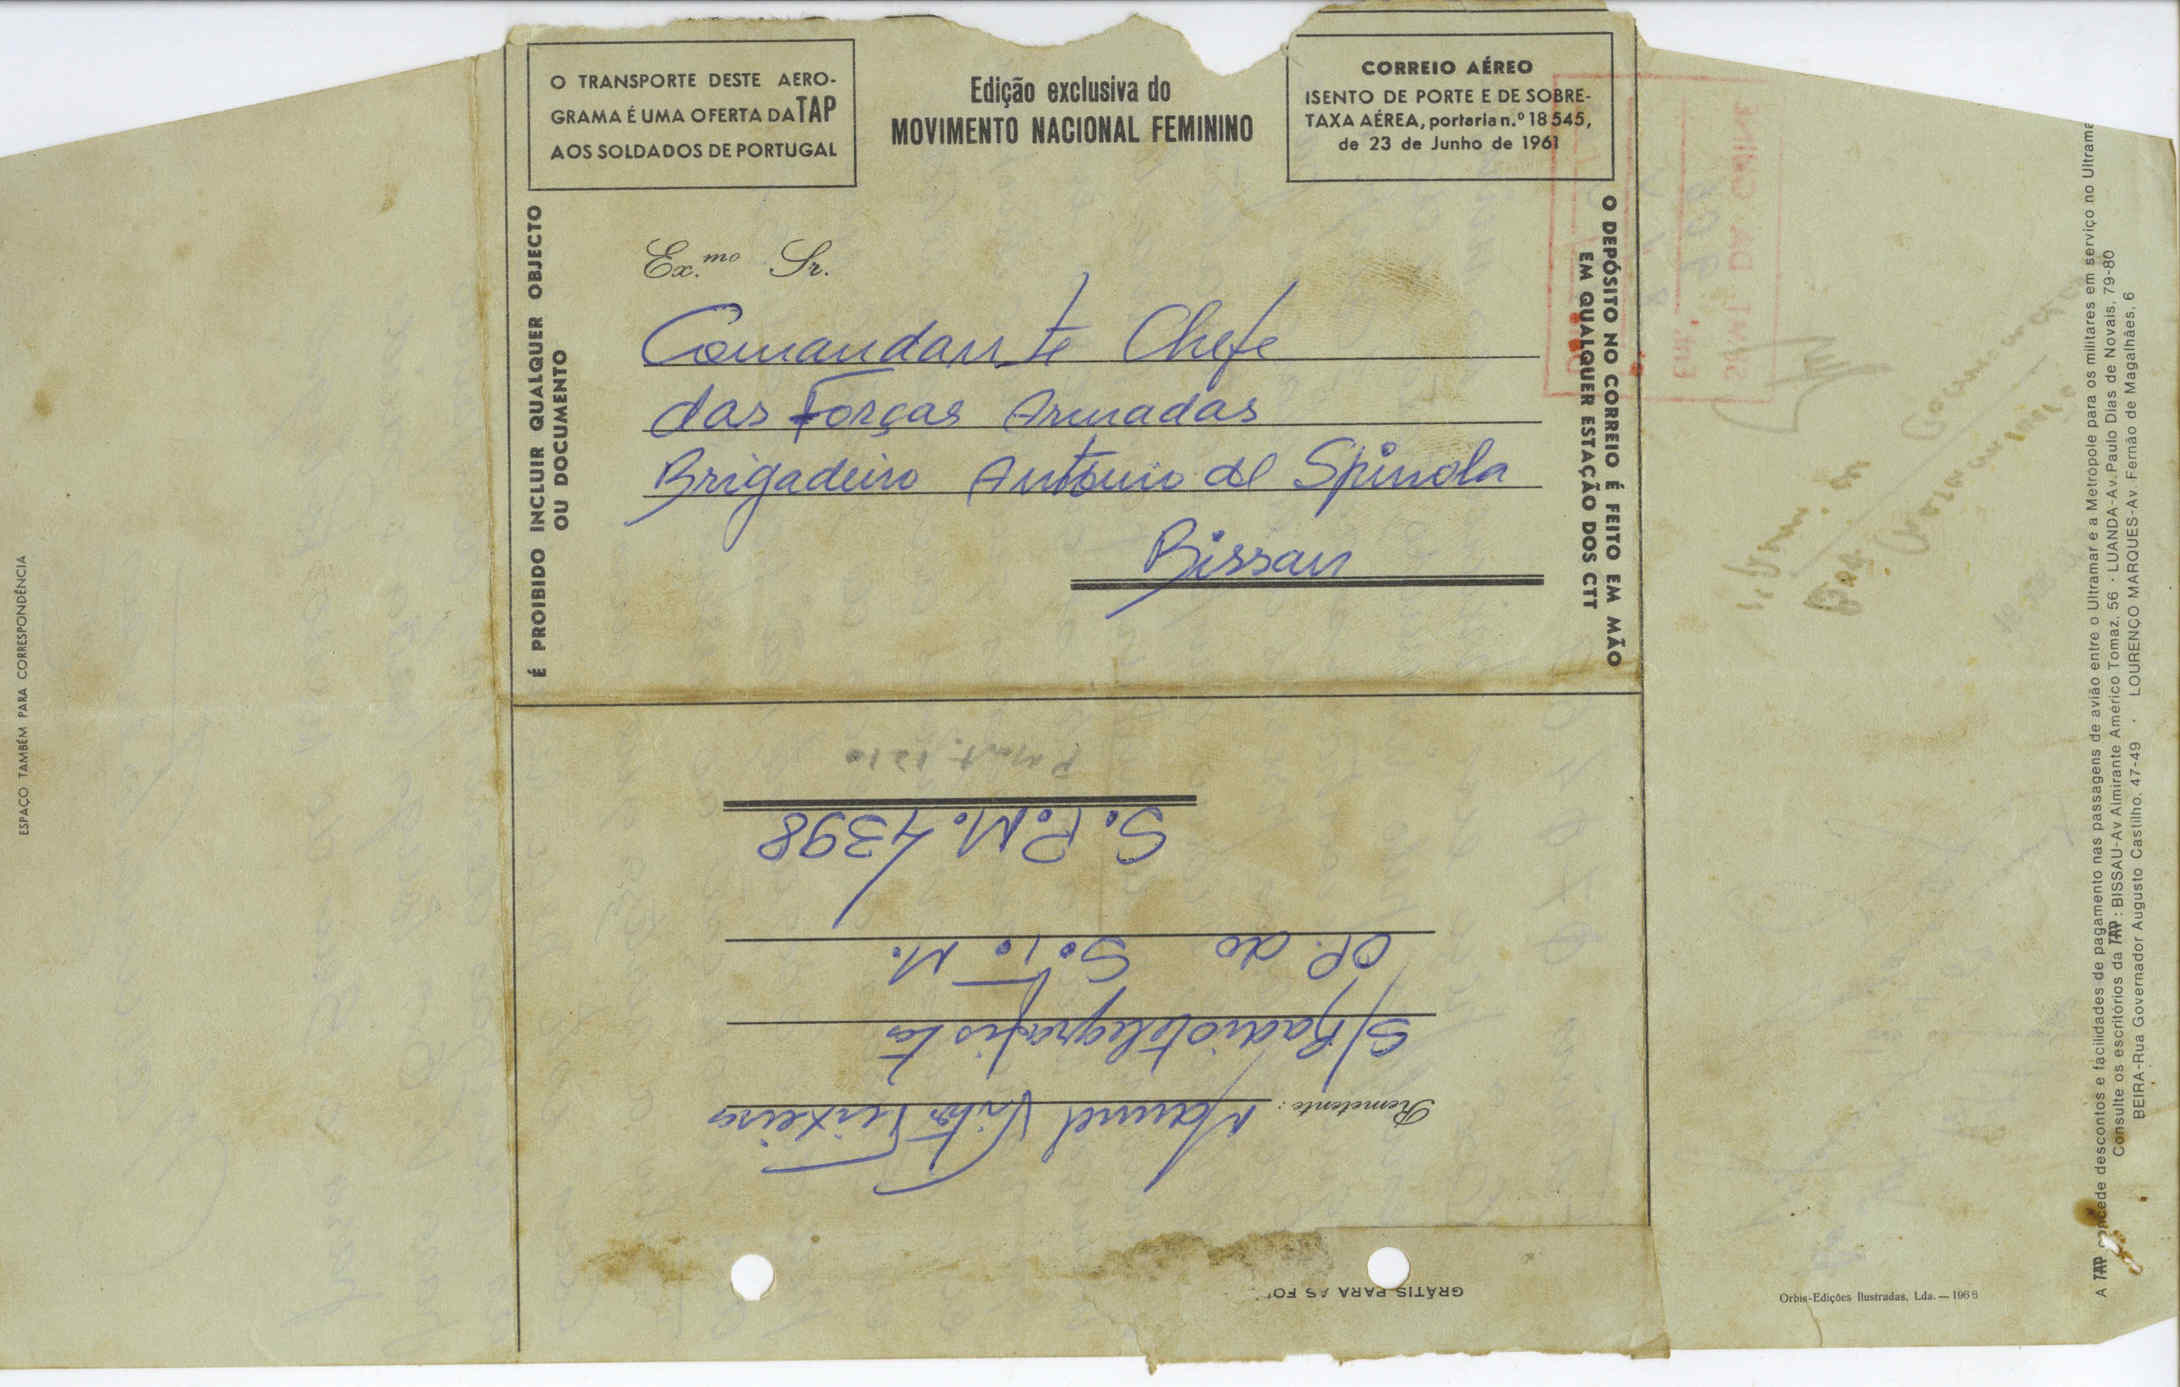 O TRANSPORTE DESTE AERO-
GRAMA É UMA OFERTA DA TAP
AOS SOLDADOS DE PORTUGAL
Edição exclusiva do
MOVIMENTO NACIONAL FEMININO
CORREIO AÉREO
ISENTO DE PORTE E DE SOBRE-
TAXA AÉREA, portaria n.º 18 545,
de 23 de Junho de 1961
É PROIBIDO INCLUIR QUALQUER OBJECTO
OU DOCUMENTO
Ex.mo Sr.
Comandante Chefe
das Forças Armadas
Brigadeiro António de Spinola
Bissau
O DEPÓSITO NO CORREIO É FEITO EM MÃO
EM QUALQUER ESTAÇÃO DOS CTT
Remetente: Manuel Teixeira
S/Radiotelegrafista
S.P.M. 4398
GRÁTIS PARA AS
ESPAÇO TAMBÉM PARA CORRESPONDÊNCIA
A TAP concede descontos e facilidades de pagamento nas passagens de avião entre o Ultramar e a Metrópole para os militares em serviço no
Consulte os escritórios da TAP: BISSAU-Av Almirante Américo Tomaz, 56 · LUANDA-Av. Paulo Dias de Novais, 79-80
BEIRA-Rua Governador Augusto Castilho, 47-49 · LOURENÇO MARQUES-Av. Fernão de Magalhães, 6
Orbis-Edições Ilustradas, Lda. — 1968